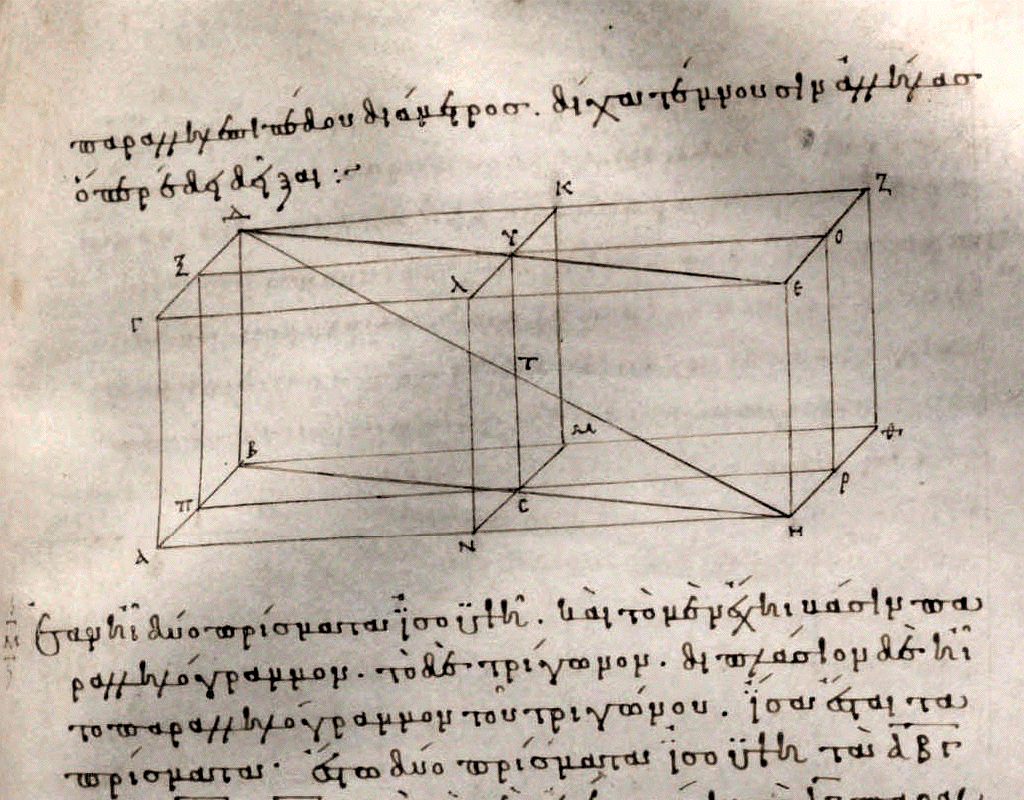 παραλληλεπιπέδου διάμετρος. δίχα τέμνουσιν ἀλλήλας
ὅπερ ἔδει δεῖξαι :~
Κ Ζ
Δ
Υ Ο
Ξ
Λ Ε
Γ
Τ
Μ Θ
Β
Π С Ρ
Α Ν Η
Ἐὰν ἦι δύο πρίσματα ἰσοϋψῆ. καὶ τὸ μὲν ἔχηι βάσιν πα
ραλληλόγραμμον. τὸ δὲ τρίγωνον. διπλάσιον δὲ ἦι
το παραλληλόγραμμον τοῦ τριγώνου. ἴσα ἔσται τα
πρίσματα. ἔστω δύο πρίσματα ἰσοϋψῆ τὰ ΑΒΓ